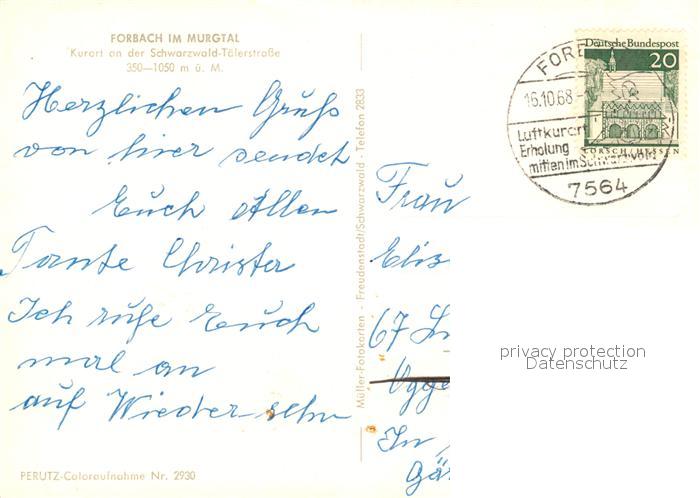 FORBACH IM MURGTAL
Kurort an der Schwarzwald-Tälerstraße
350—1050 m ü. M.
Herzlichen Gruß
von hier sendet
Euch Allen
Tante Christa
Ich rufe Euch
mal an
auf Wieder-sehn
PERUTZ-Coloraufnahme Nr. 2930
Müller-Fotokarten - Freudenstadt/Schwarzwald - Telefon 2833
Deutsche Bundespost
20
LORSCH/HESSEN
FORB
16.10.68-
Luftkurort
Erholung
mitten im Schwarzwald
7564
Frau
Elis
67 Lu
Ogge
In
Gä
privacy protection
Datenschutz